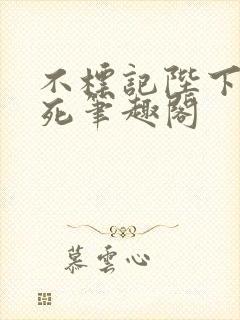 不標記陛下
死筆趣閣
慕雲心